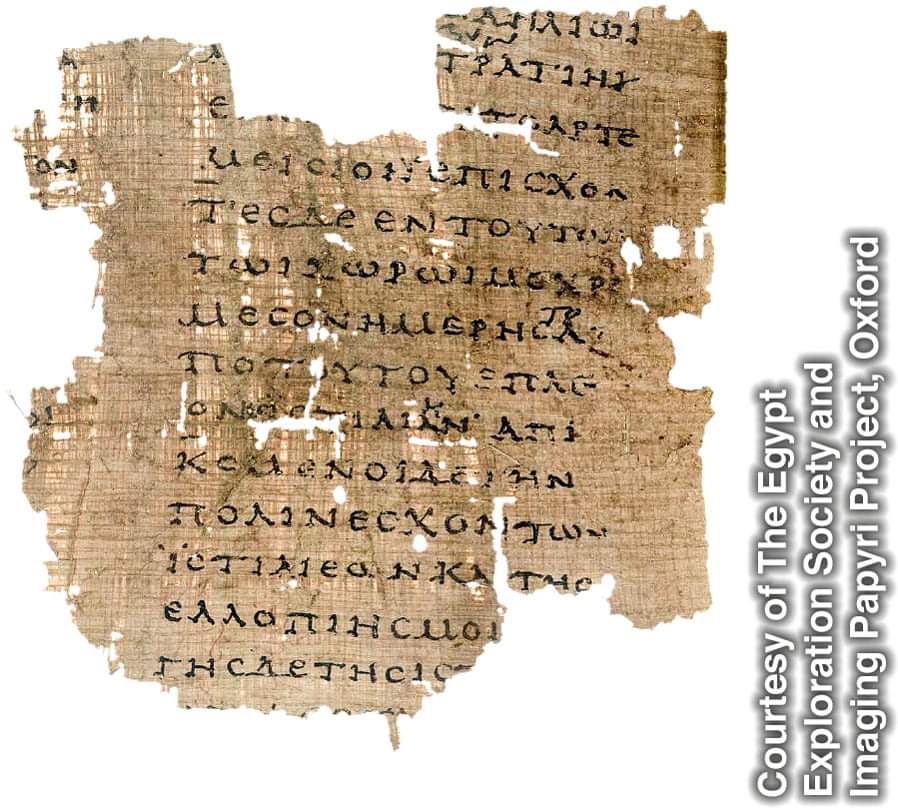 ΑΗΛΙΩΙ
ΤΡΑΤΙΗ
ΑΡΤΕ
ΜΕΙϹΙΟΝ ΕΠΙϹΧΟΝ
ΤΕϹΔΕΕΝΤΟΥΤΩΙ
ΤΩΙΧΩΡΩΙΜΕΧΡΙ
ΜΕϹΟΝΗΜΕΡΗϹΑ
ΠΟΤΟΥΤΟΥΕΠΛΕ
ΟΝΕϹΙϹΤΙΑΙΑΝ ΑΠΙ
ΚΟΜΕΝΟΙΔΕΤΗΝ
ΠΟΛΙΝΕϹΧΟΝΤΩΝ
ΪϹΤΙΑΙΕΩΝΚΑΙΤΗϹ
ΕΛΛΟΠΙΗϹΜΟΙ
ΓΗϹΔΕΤΗϹΙϹ
Courtesy of The Egypt
Exploration Society and
Imaging Papyri Project, Oxford